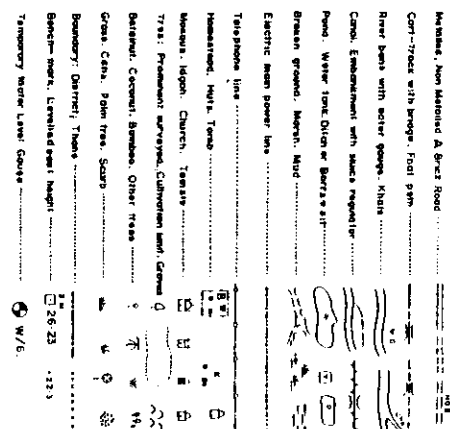 Metalled, Non Metalled & Brick Road
Cart-track with bridge. Foot path
River bank with water gauge. Khals
Canal. Embankment with sluce regulator
Pond. Water tank. Ditch or Borrow pit
Broken ground. Marsh. Mud
Electric main power line
Telephone line
Homestead. Huts. Tomb
Mosque. Idgah. Church. Temple
Tree: Prominent surveyed. Cultivation limit. Groves
Betelnut. Coconut. Bamboo. Other trees
Grass. Cane. Palm tree. Scurb
Boundary: District; Thana
Bench-mark. Levelled spot height 26·23 ·22·5
Temporary Water Level Gauge W/G.